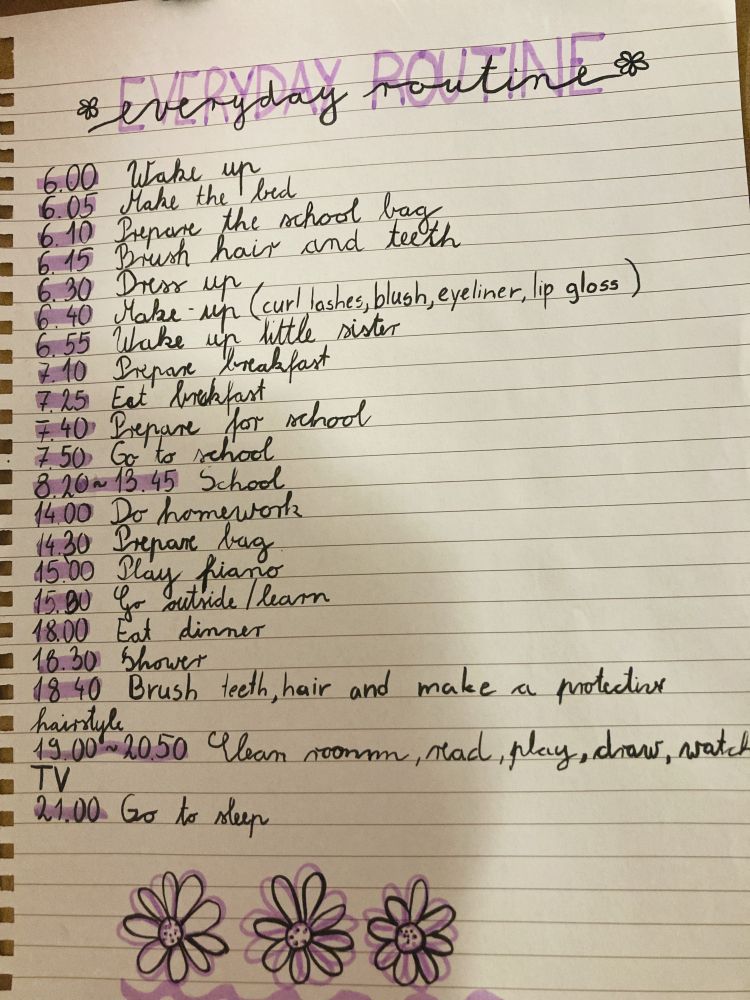 EVERYDAY ROUTINE
everyday routine
6.00 Wake up
6.05 Make the bed
6.10 Prepare the school bag
6.15 Brush hair and teeth
6.30 Dress up
6.40 Make-up (curl lashes, blush, eyeliner, lip gloss)
6.55 Wake up little sister
7.10 Prepare breakfast
7.25 Eat brekfast
7.40 Prepare for school
7.50 Go to school
8.20~13.45 School
14.00 Do homework
14.30 Prepare bag
15.00 Play piano
15.30 Go outside/learn
18.00 Eat dinner
18.30 Shower
18 40 Brush teeth, hair and make a protective
hairstyle
19.00~20.50 Clean roomm, read, play, draw, watch
TV
21.00 Go to sleep